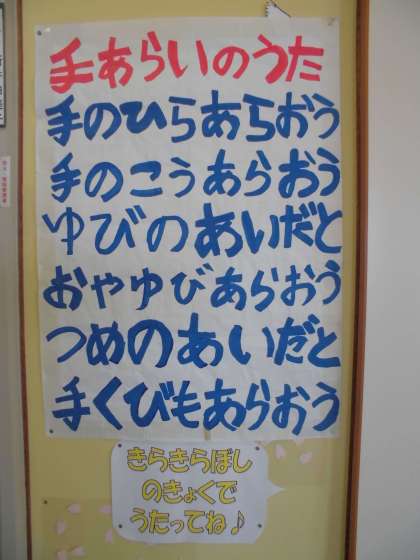 手あらいのうた
手のひらあらおう
手のこうあらおう
ゆびのあいだと
おやゆびあらおう
つめのあいだと
手くびもあらおう
きらきらぼし
のきょくで
うたってね♪